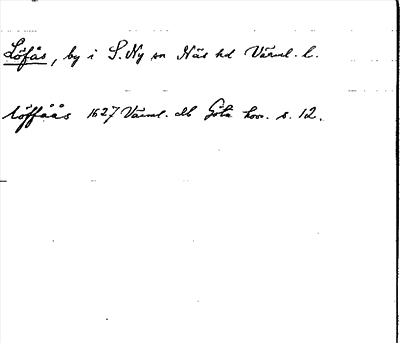 Löfås, by i S. Ny sn Näs hd Värml. l.
Löffåås 1627 Värml. db Göta hovr. s. 12.